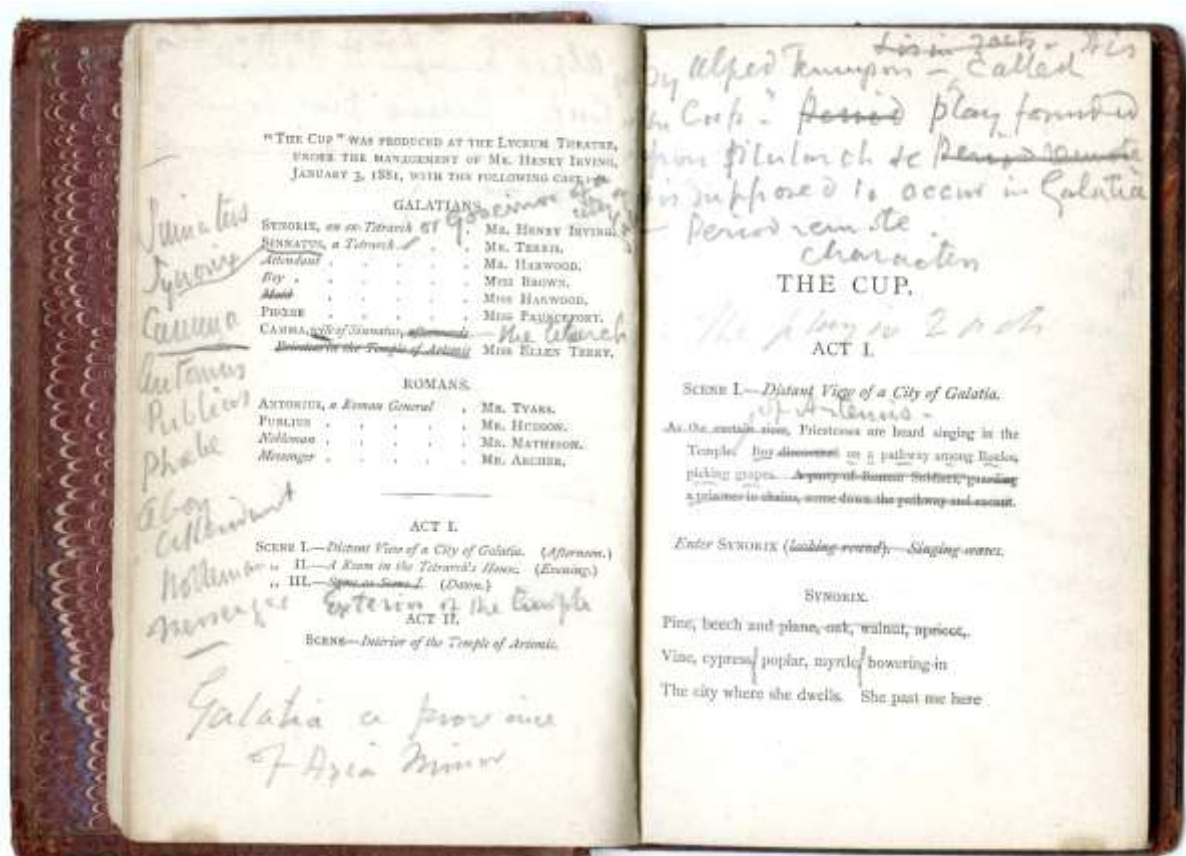 "THE CUP" WAS PRODUCED AT THE LYCEUM THEATRE,
UNDER THE MANAGEMENT OF MR. HENRY IRVING,
JANUARY 3, 1881, WITH THE FOLLOWING CAST:—
GALATIANS.
or governor of a
city
SYNORIX, an ex-Tetrarch . MR. HENRY IRVING.
SINNATUS, a Tetrarch . . MR. TERRIS.
Attendant . . . . . MR. HARWOOD.
Boy . . . . . . MISS BROWN.
Maid . . . . . MISS HARWOOD.
PHŒBE . . . . . MISS PAUNCEFORT.
CAMMA, wife of Sinnatus, afterwards
Priestess in the Temple of Artemis MISS ELLEN TERRY.
the Tetrarch
ROMANS.
ANTONIUS, a Roman General . MR. TYARS.
PUBLIUS . . . . . MR. HUDSON.
Nobleman . . . . . MR. MATHESON.
Messenger . . . . . MR. ARCHER.
Sinnatus
Synorix
Camma
Antonius
Publius
Phœbe
a boy
attendant
Nobleman
messenger
ACT I.
SCENE I.—Distant View of a City of Galatia. (Afternoon.)
„ II.—A Room in the Tetrarch's House. (Evening.)
„ III.—Same as Scene I. (Dawn.)
Exterior of the temple
ACT II.
SCENE—Interior of the Temple of Artemis.
Galatia a province
of Asia Minor
is in 2 acts. It is
by Alfred Tennyson – called
Cup". Period play founded
upon Plutarch &c Period remote
is supposed to occur in Galatia
Period remote.
characters
THE CUP.
The play in 2 acts
ACT I.
SCENE I.—Distant View of a City of Galatia.
of Artemis
As the curtain rises, Priestesses are heard singing in the
Temple. Boy discovered on a pathway among Rocks,
picking grapes. A party of Roman Soldiers, guarding
a prisoner in chains, come down the pathway and exeunt.
Enter SYNORIX (looking round). Singing ceases.
SYNORIX.
Pine, beech and plane, oak, walnut, apricot,
Vine, cypress, poplar, myrtle, bowering-in
The city where she dwells. She past me here